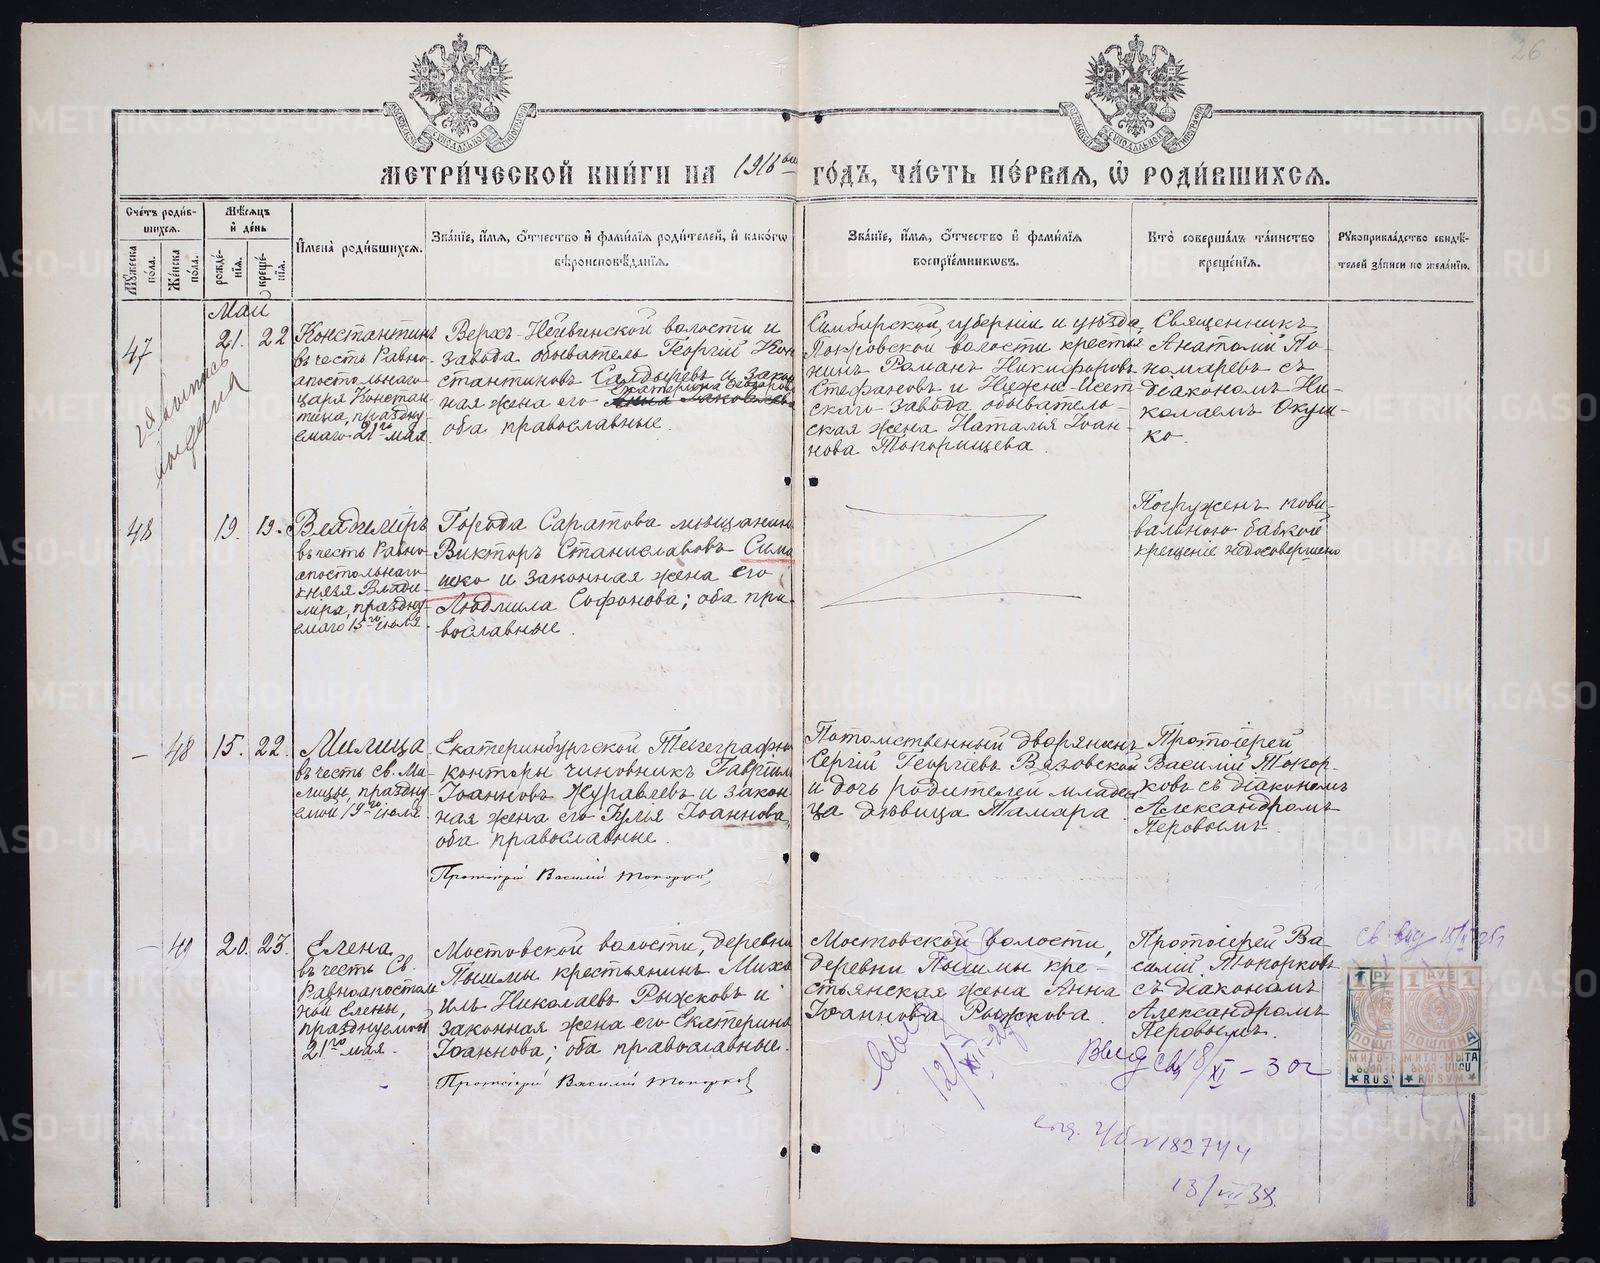 26
МЕТРИ́ЧЕСКОЙ КНИ́ГИ НА 1916 ГО́ДЪ, ЧА́СТЬ ПЕ́РВАЯ, Ѡ РОДИ́ВШИХСЯ.
Сче́тъ роди́в-
шихся.
Му́жеска по́ла.
Же́нска по́ла.
Мѣ́сяцъ и де́нь
рожде́нія.
креще́нія.
И҆мена̀ роди́вшихся.
Зва́ніе, и҆́мя, ѻ҆́тчество и҆ фами́лія роди́телей, и҆ како́гѡ
вѣроисповѣ́данія.
Зва́ніе, и҆́мя, ѻ҆́тчество и҆ фами́лія
воспріе́мниковъ.
Кто̀ соверша́лъ та́инство
креще́нія.
Рукоприкла́дство свидѣ́-
телей за́писи по жела́нію.
Май
47
21. 22
Константинъ
въ честь Равно-
апостольнаго
царя Констан
тина, праздну
емаго 21го мая.
Верхъ-Нейвинской волости и
завода обыватель Георгій Кон
стантиновъ Салдыревъ и закон
ная жена его
оба православные.
Симбирской губерніи и уѣзда,
Покровской волости крестья
нинъ Романъ Никифоровъ
Стефановъ и Нижне-Исет
скаго завода обыватель-
ская жена Наталья Іоан-
нова Топорищева.
Священникъ
Анатолій По-
номаревъ съ
діакономъ Ни-
колаемъ Окули-
ко.
48
19. 19.
Владиміръ
въ честь Равно-
апостольнаго
князя Влади-
мира, праздну-
емаго 15го іюля.
Города Саратова мѣщанинъ
Викторъ Станиславовъ Сима
шко и законная жена его
Людмила Софонова; оба пра-
вославные.
Погруженъ пови-
вальною бабкой
крещеніе недосовершено
– 48 15. 22.
Милица
въ честь св. Ми-
лицы, праздну
емой 19го іюля.
Екатеринбургской Телеграфной
конторы чиновникъ Гавріилъ
Іоанновъ Журавлевъ и закон
ная жена его Юлія Іоаннова,
оба православные.
Протоіерей Василій Топорковъ
Потомственный дворянинъ
Сергій Георгіевъ Вязовской
и дочь родителей младен
ца дѣвица Тамара.
Протоіерей
Василій Топор-
ковъ съ діакономъ
Александромъ
Перовымъ.
– 49 20. 23.
Елена
въ честь Св.
Равноапостоль
ной Елены,
празднуемой
21го мая.
Мостовской волости, деревни
Пышмы крестьянинъ Миха
илъ Николаевъ Рыжковъ и
законная жена его Екатерина
Іоаннова; оба православные.
Протоіерей Василій Топорковъ
Мостовской волости,
деревни Пышмы кре-
стьянская жена Анна
Іоаннова Рыжкова.
Протоіерей Ва-
силій Топорковъ
съ діакономъ
Александромъ
Перовымъ.
1 РУБ 1
ПОШЛИНА
RUSVM
METRIKI.GASO-URAL.RU